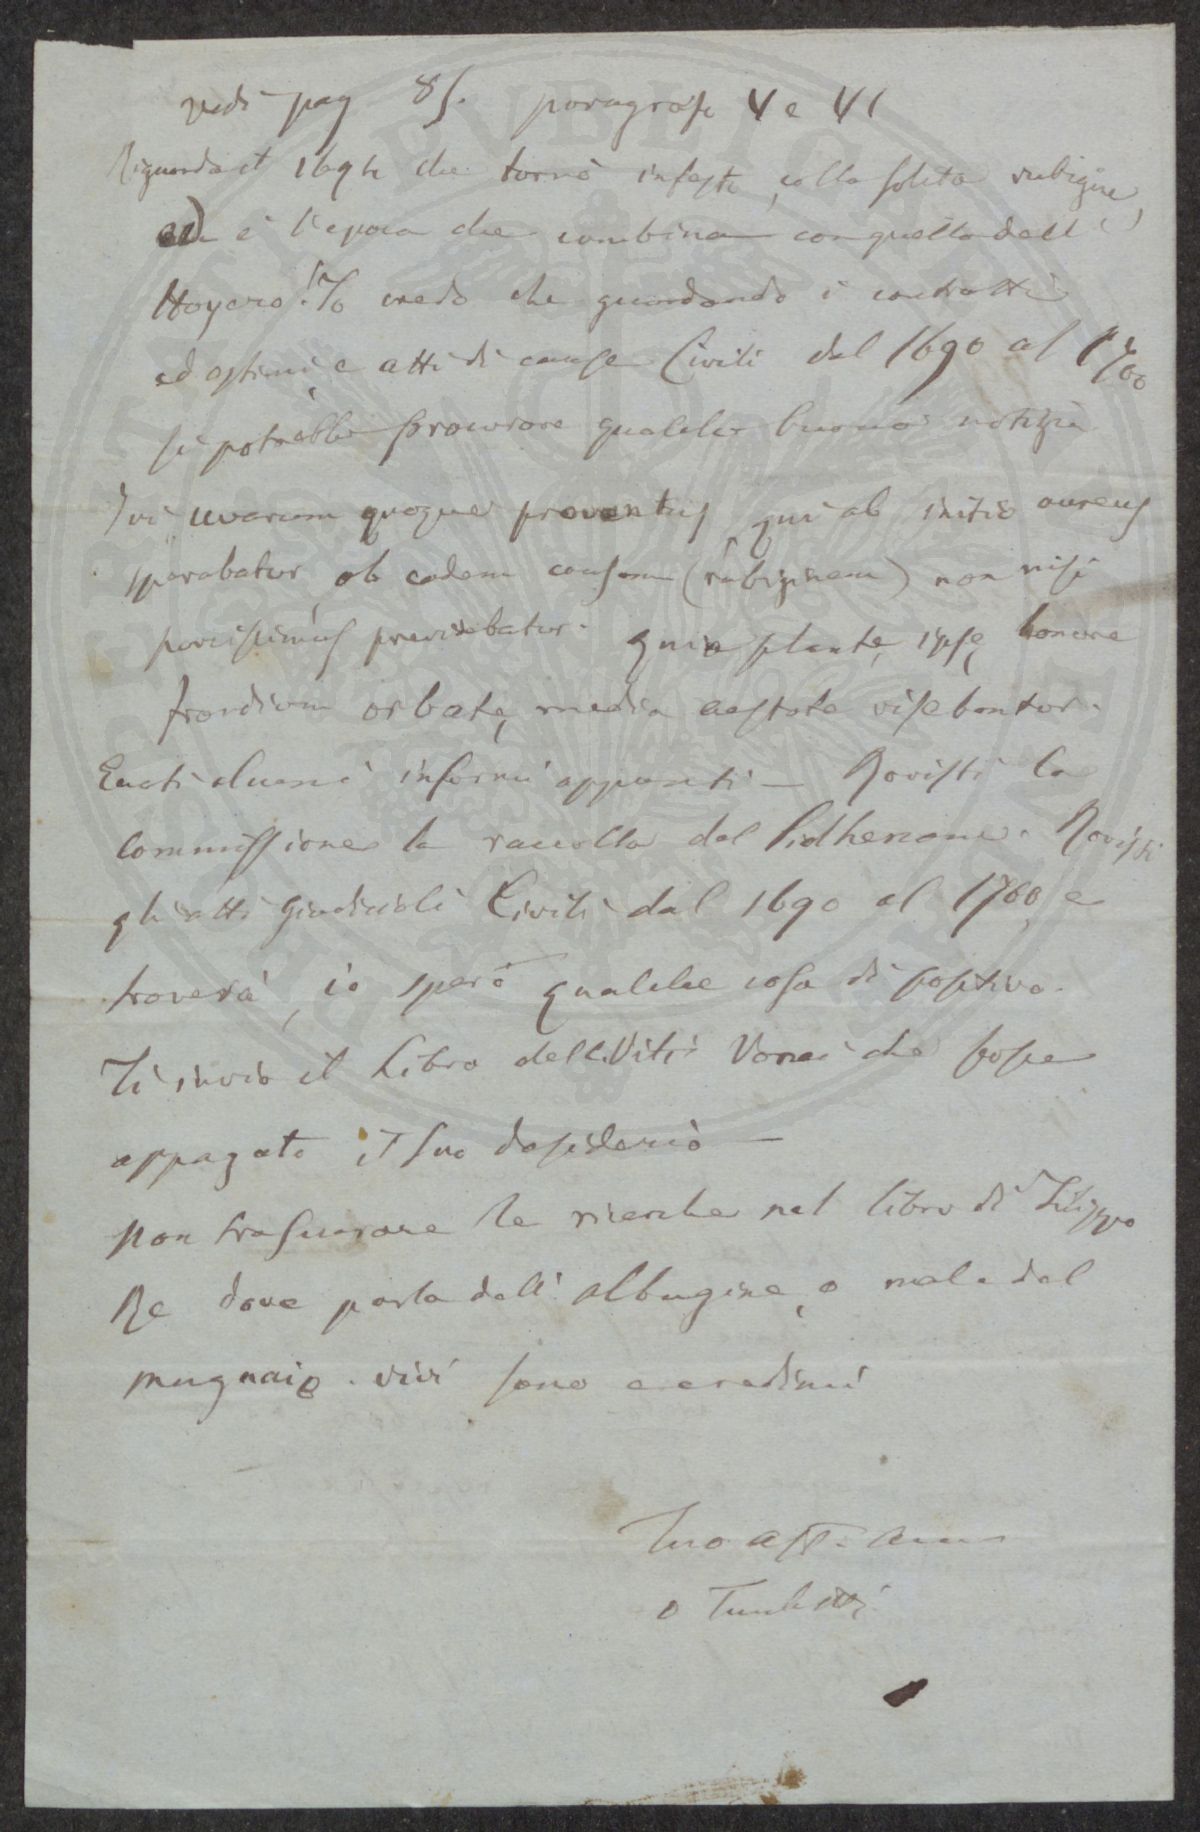 vedi pag 85. paragrafi V e VI
Riguarda il 1694 che tornò infesto, colla solita rubigine,
ed è l'epoca che combina con quello dell'
Hoyero! Io credo che guardando i contratti
ed estimi, e atti di cause Civili dal 1690 al 1700
si potrebbe procurare qualche buona notizia
Ivi uvarum quoque proventus, qui ab initio aureus
sperabatur, ob eadem causam (rubiginem) non nisi
parcissimus previdebatur. quia plantę ipsę honore
frondium orbatę, media aestate visebantur.
Eccoti alcuni informi appunti — Rovisti la
commissione la raccolta del . Rovisti
gli atti giudiciali Civili dal 1690 al 1700, e
troverà, io spero qualche cosa di positivo.
Ti invio il Libro delle Viti che fosse
appagato il suo desiderio —
Non trascurare le ricerche nel libro di Filippo
Re dove parla dell'albugine, o male del
mugnaio. ivi sono
Tuo aff. Amico